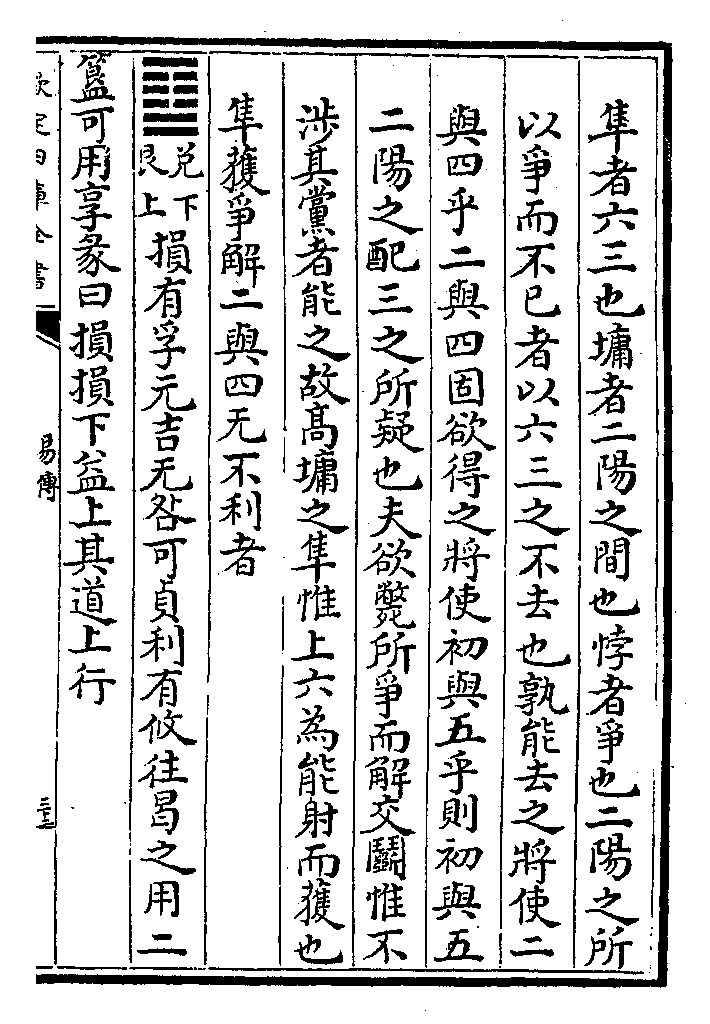 隼者六三也墉者二陽之間也悖者爭也二陽之所
以爭而不已者以六三之不去也孰能去之將使二
與四乎二與四固欲得之將使初與五乎則初與五
二陽之配三之所疑也夫欲斃所爭而解交鬭惟不
涉其黨者能之故髙墉之隼惟上六為能射而獲也
隼獲爭解二與四无不利者
䷨兌下艮上損有孚元吉无咎可貞利有攸往曷之用二
簋可用享彖曰損損下益上其道上行
欽定四庫全書
易傳